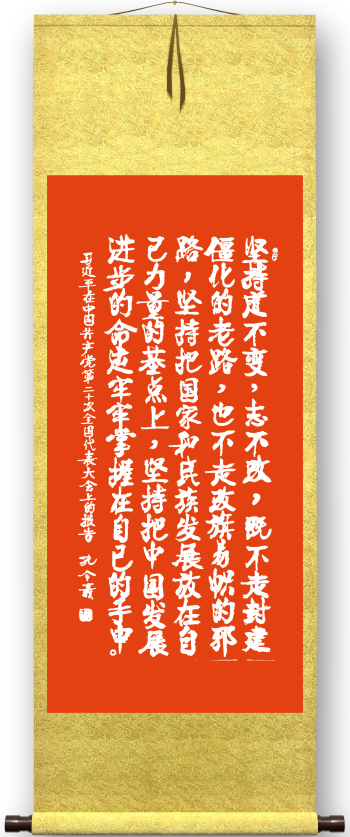 坚持道不变，志不改，既不走封建
僵化的老路，也不走改旗易帜的邪
路，坚持把国家和民族发展放在自
己力量的基点上，坚持把中国发展
进步的命运牢牢掌握在自己的手中。
习近平在中国共产党第二十次全国代表大会上的报告 孔令义